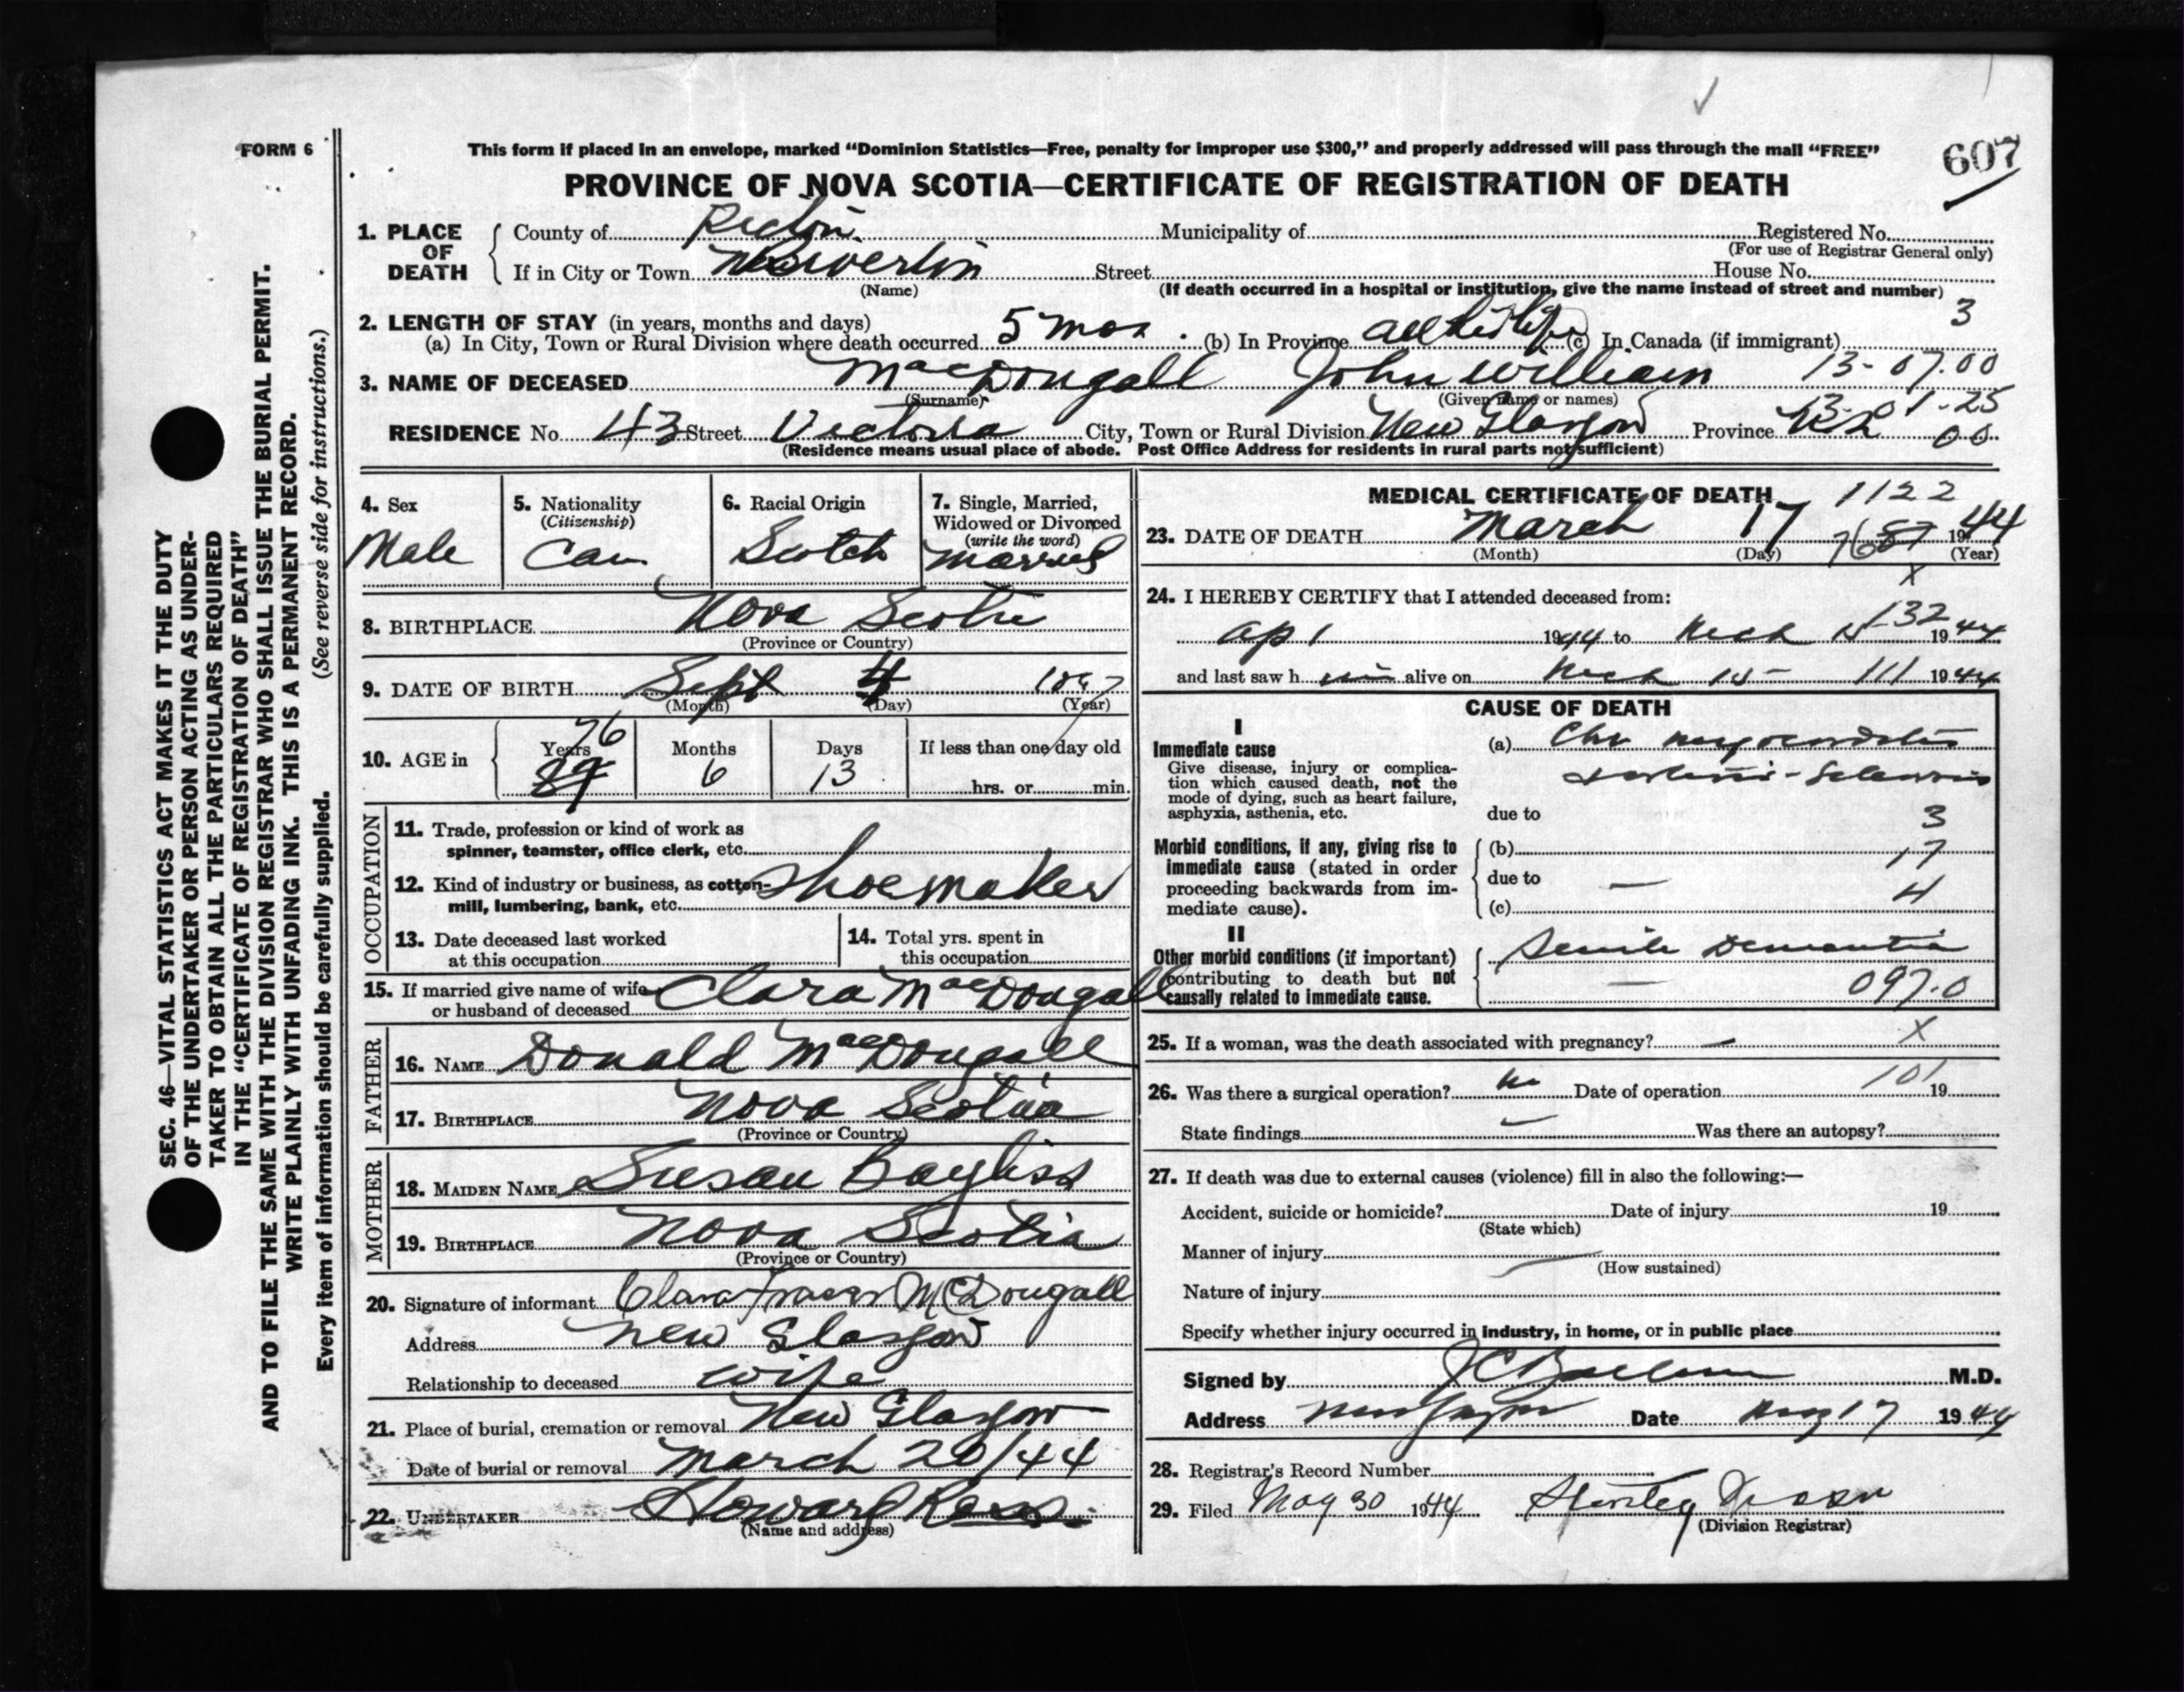 FORM 6
This form if placed in an envelope, marked “Dominion Statistics—Free, penalty for improper use $300,” and properly addressed will pass through the mail “FREE”
607
PROVINCE OF NOVA SCOTIA—CERTIFICATE OF REGISTRATION OF DEATH
1. PLACE OF DEATH
County of Pictou Municipality of Registered No.
(For use of Registrar General only)
If in City or Town Street House No.
(Name) (If death occurred in a hospital or institution, give the name instead of street and number)
2. LENGTH OF STAY (in years, months and days) 3
(a) In City, Town or Rural Division where death occurred 5 mos. (b) In Province all his life (c) In Canada (if immigrant)
3. NAME OF DECEASED MacDougall John William 13-07.00
(Surname) (Given name or names)
13-01-25
RESIDENCE No. 43 Street Victoria City, Town or Rural Division New Glasgow Province 00
(Residence means usual place of abode. Post Office Address for residents in rural parts not sufficient)
4. Sex
Male
5. Nationality
(Citizenship)
Can
6. Racial Origin
Scotch
7. Single, Married,
Widowed or Divorced
(write the word)
Married
8. BIRTHPLACE Nova Scotia
(Province or Country)
9. DATE OF BIRTH Sept 4 1867
(Month) (Day) (Year)
10. AGE in
Years 76
Months 6
Days 13
If less than one day old
hrs. or min.
OCCUPATION
11. Trade, profession or kind of work as
spinner, teamster, office clerk, etc.
12. Kind of industry or business, as cotton-
mill, lumbering, bank, etc. Shoemaker
13. Date deceased last worked
at this occupation
14. Total yrs. spent in
this occupation
15. If married give name of wife
or husband of deceased Clara MacDougall
FATHER
16. NAME Donald MacDougall
17. BIRTHPLACE Nova Scotia
(Province or Country)
MOTHER
18. MAIDEN NAME Susan Bayliss
19. BIRTHPLACE Nova Scotia
(Province or Country)
20. Signature of informant Clara Fraser McDougall
Address New Glasgow
Relationship to deceased wife
21. Place of burial, cremation or removal New Glasgow
Date of burial or removal March 20/44
22. UNDERTAKER Howard Ross
(Name and address)
MEDICAL CERTIFICATE OF DEATH 1122
23. DATE OF DEATH March 17 1944
(Month) (Day) (Year)
X
24. I HEREBY CERTIFY that I attended deceased from:
132
ap 1 1944 to Mch 15 1944
and last saw him alive on Mch 15 111 1944
CAUSE OF DEATH
I
Immediate cause
Give disease, injury or complica-
tion which caused death, not the
mode of dying, such as heart failure,
asphyxia, asthenia, etc.
(a) Chr myocarditis
due to
3
Morbid conditions, if any, giving rise to
immediate cause (stated in order
proceeding backwards from im-
mediate cause).
(b) 17
due to —
(c) 4
II
Other morbid conditions (if important)
contributing to death but not
causally related to immediate cause.
Senile Dementia
— 097.0
25. If a woman, was the death associated with pregnancy? — X
26. Was there a surgical operation? no Date of operation 101 19
State findings Was there an autopsy?
27. If death was due to external causes (violence) fill in also the following:—
Accident, suicide or homicide? Date of injury 19
(State which)
Manner of injury
(How sustained)
Nature of injury
Specify whether injury occurred in industry, in home, or in public place
Signed by M.D.
Address New Glasgow Date 17 1944
28. Registrar's Record Number
29. Filed May 30 1944
(Division Registrar)
SEC. 46—VITAL STATISTICS ACT MAKES IT THE DUTY
OF THE UNDERTAKER OR PERSON ACTING AS UNDER-
TAKER TO OBTAIN ALL THE PARTICULARS REQUIRED
IN THE “CERTIFICATE OF REGISTRATION OF DEATH”
AND TO FILE THE SAME WITH THE DIVISION REGISTRAR WHO SHALL ISSUE THE BURIAL PERMIT.
WRITE PLAINLY WITH UNFADING INK. THIS IS A PERMANENT RECORD.
Every item of information should be carefully supplied. (See reverse side for instructions.)